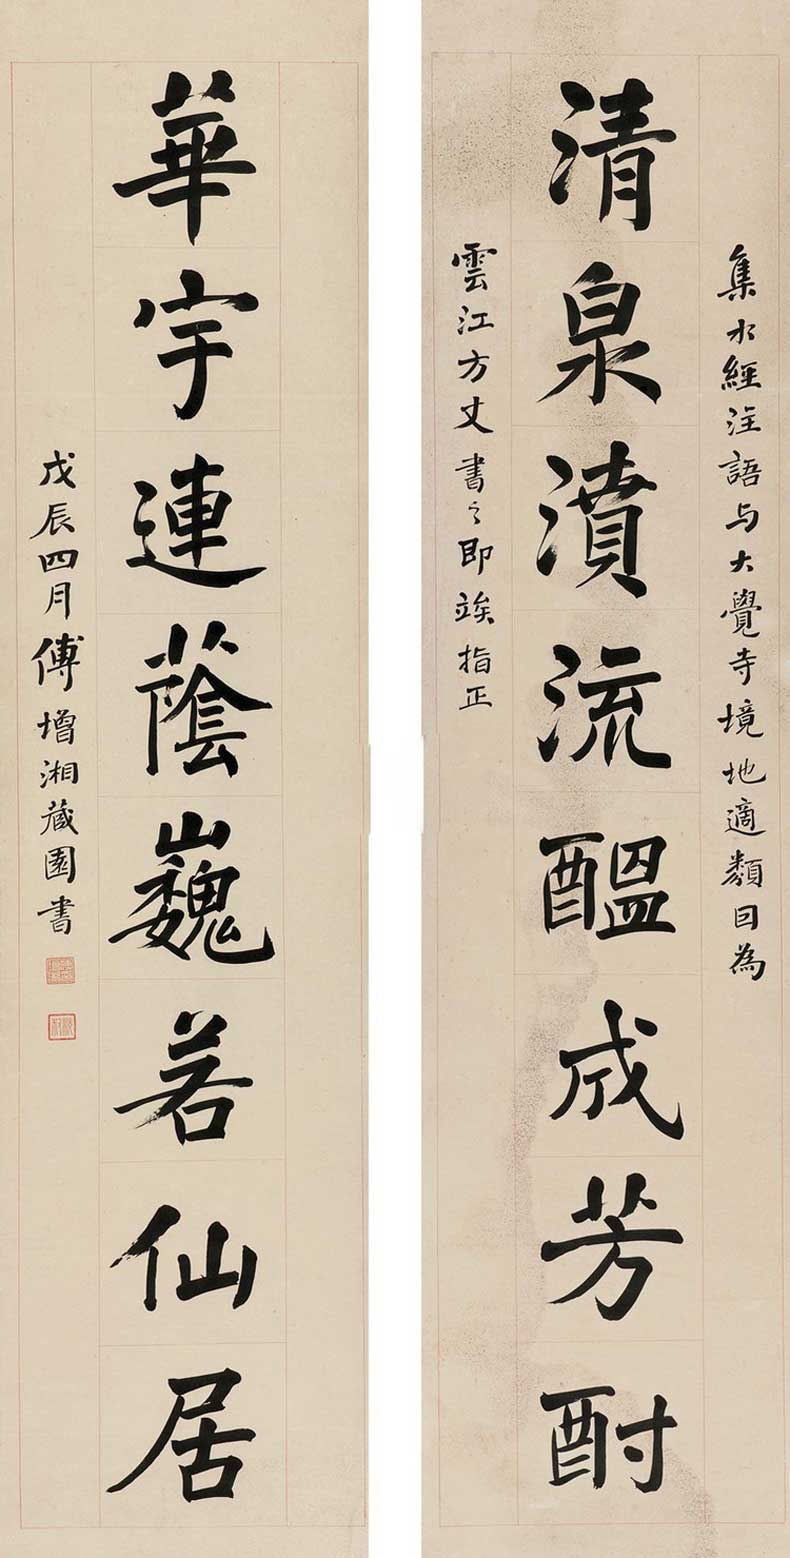 集水經注語与大覺寺境地適類因為
清泉濆流醞成芳酎
雲江方丈書之即竢指正
華宇連蔭巍若仙居
戊辰四月傅增湘藏園書